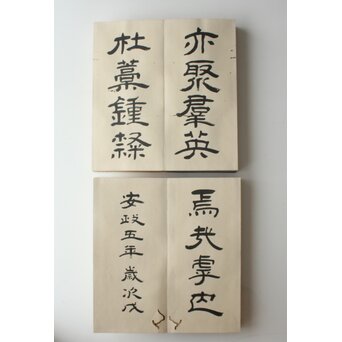 亦聚羣英
杜藁鍾隸
焉哉乎也
安政五年歲次戊